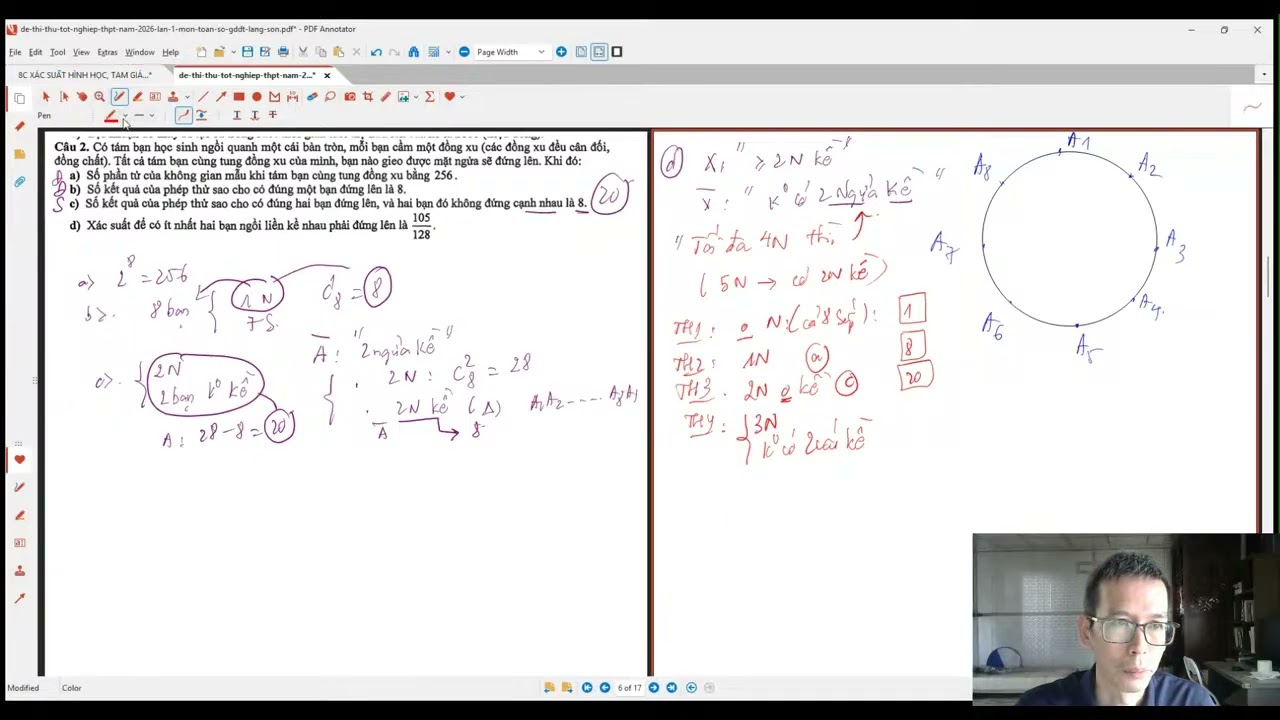 de-thi-thu-tot-nghiep-thpt-nam-2026-lan-1-mon-toan-so-gddt-lang-son.pdf* - PDF Annotator
File Edit View Tool Extras Window Help
Page Width
8C XÁC SUẤT HÌNH HỌC, TAM GIÁ...*
de-thi-thu-tot-nghiep-thpt-nam-2...*
Pen
Câu 2. Có tám bạn học sinh ngồi quanh một cái bàn tròn, mỗi bạn cầm một đồng xu (các đồng xu đều cân đối,
đồng chất). Tất cả tám bạn cùng tung đồng xu của mình, bạn nào gieo được mặt ngửa sẽ đứng lên. Khi đó:
a) Số phần tử của không gian mẫu khi tám bạn cùng tung đồng xu bằng 256.
b) Số kết quả của phép thử sao cho có đúng một bạn đứng lên là 8.
c) Số kết quả của phép thử sao cho có đúng hai bạn đứng lên, và hai bạn đó không đứng cạnh nhau là 8. 20
d) Xác suất để có ít nhất hai bạn ngồi liền kề nhau phải đứng lên là 105/128.
a) 2^8 = 256
b) 8 bạn { 1 N
7 S.
C^1_8 = 8
Ā: "2 ngửa kề"
c) { 2N
2 bạn k° kề
A: 28 - 8 = 20
. 2N: C^2_8 = 28
. 2N kề (Δ) A1A2 ---- A8A1
Ā → 8
d X: " ≥ 2N kề "
X̄: " k° có 2 Ngửa kề "
" Tối đa 4N thì
( 5N → có 2N kề )
TH1: 0 N: (cả 8 Sấp): 1
TH2: 1N a 8
TH3. 2N 0 kề c 20
TH4: { 3N
k° có 2 kề
A1
A2
A3
A4
A5
A6
A7
A8
Modified Color
6 of 17